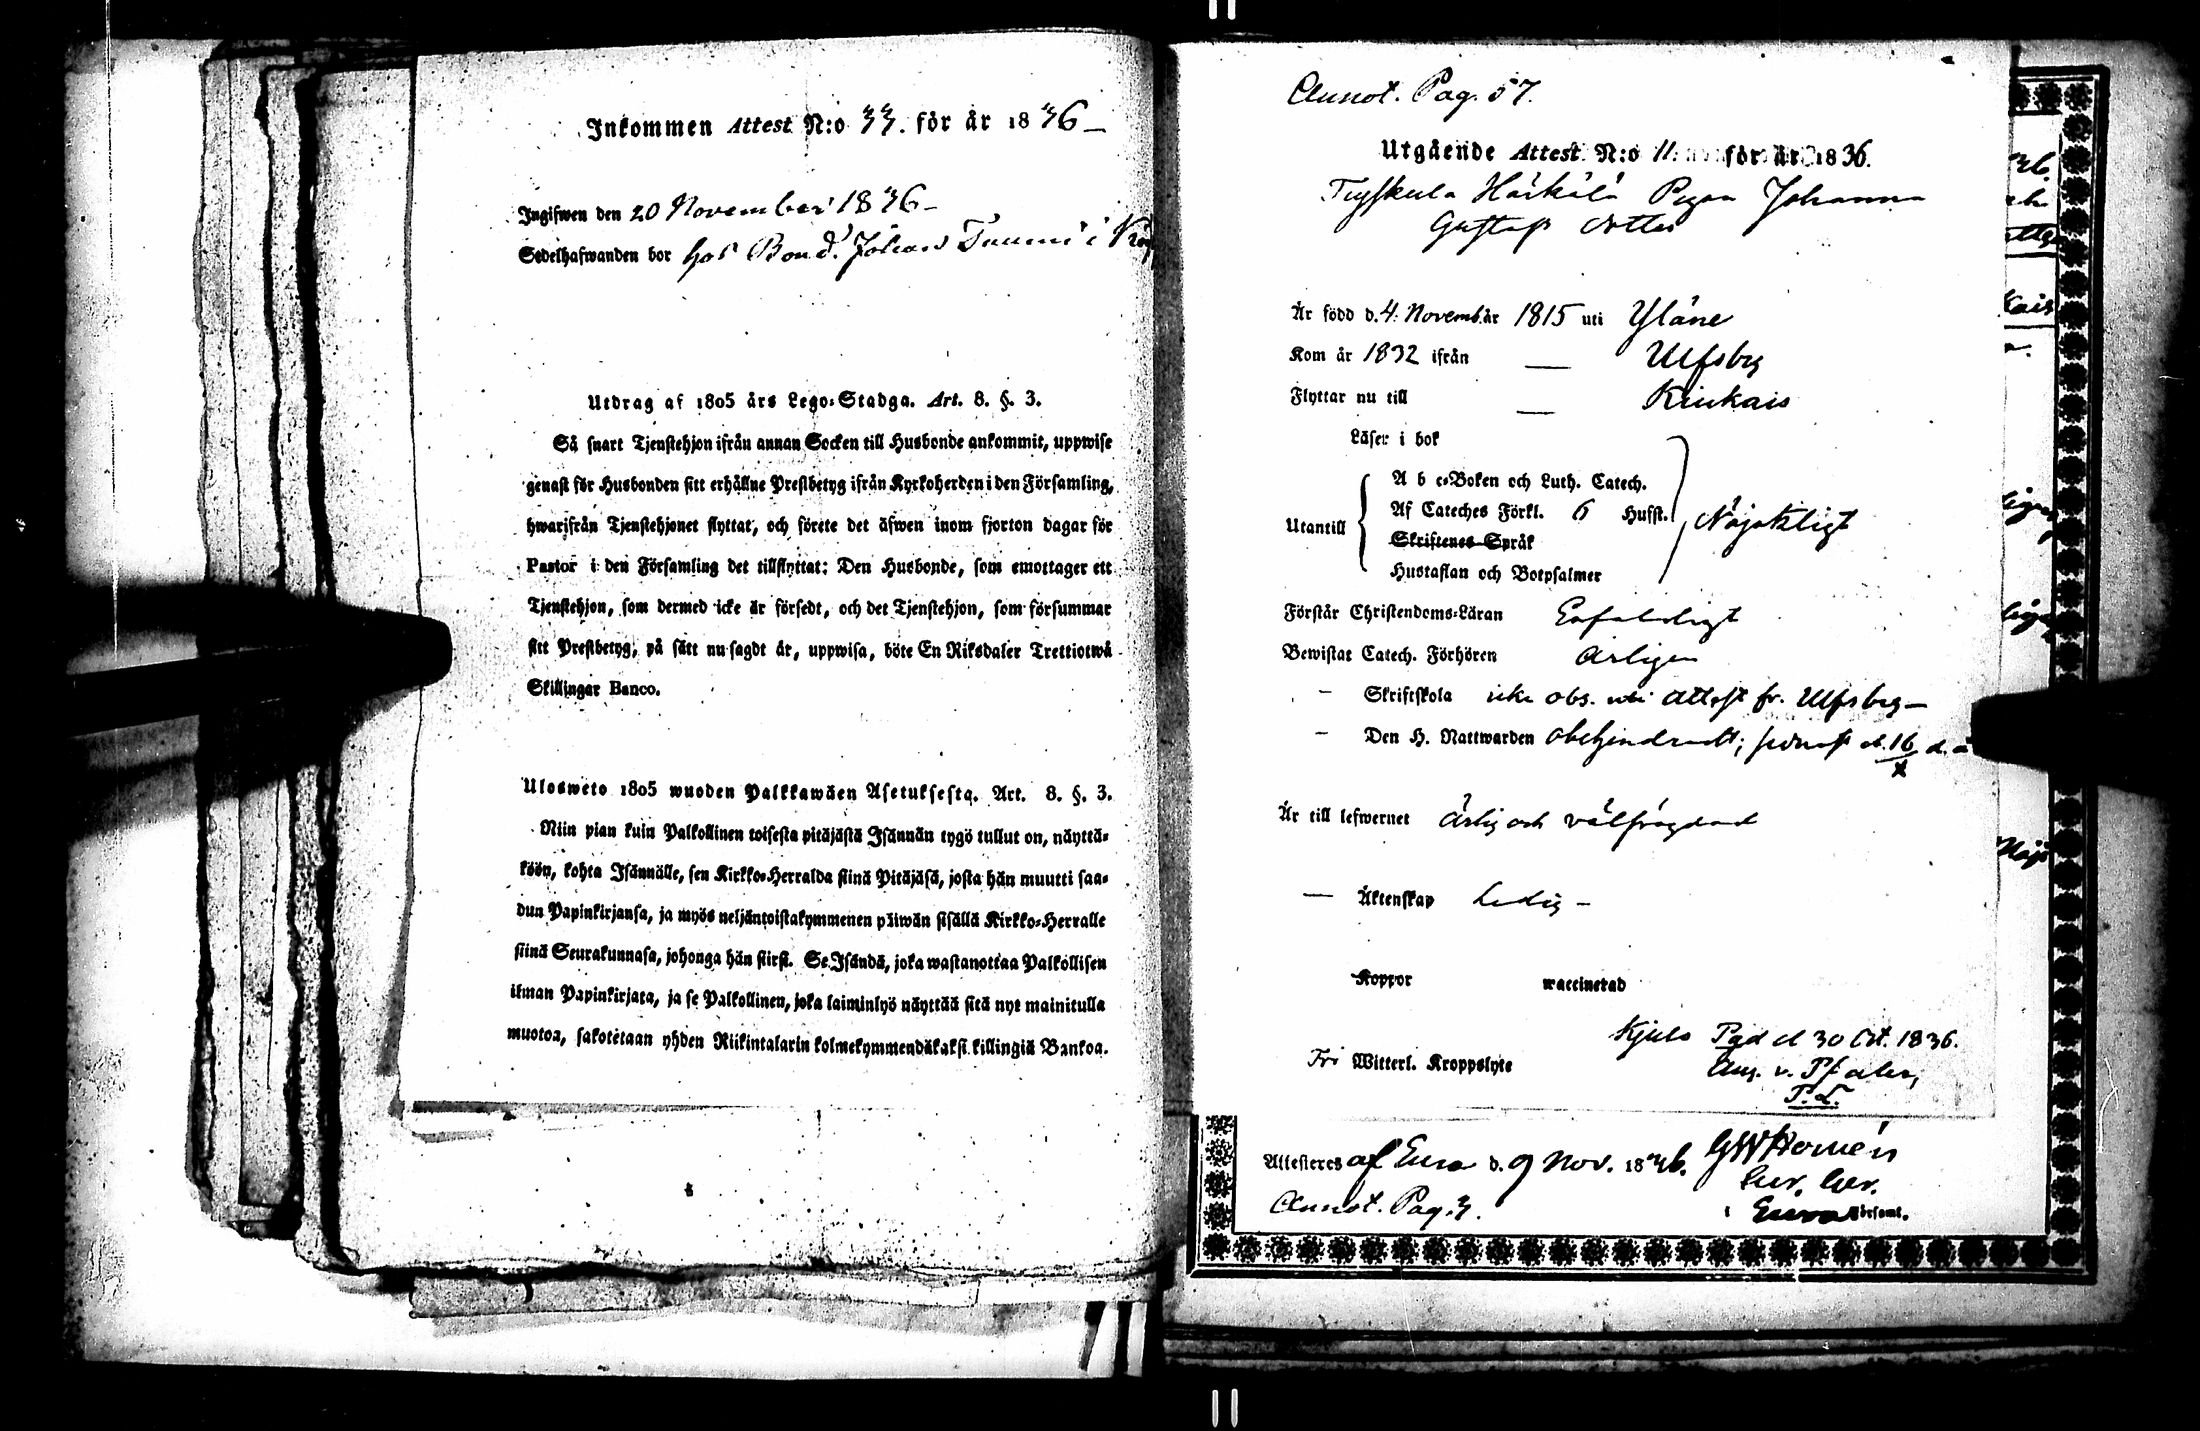 Inkommen Attest N:o 33. för år 1836
Ingifwen den 20 November 1836
Sedelhafwanden bor hos Bond. Johan Tuumi i
Utdrag af 1805 års Lego-Stadga. Art. 8. §. 3.
Så snart Tjenstehjon ifrån annan Socken till Husbonde ankommit, uppwise
genast för Husbonden sitt erhållne Prestbetyg ifrån Kyrkoherden i den Församling,
hwarifrån Tjenstehjonet flyttat, och förete det äfwen inom fjorton dagar för
Pastor i den Församling det tillflyttat: Den Husbonde, som emottager ett
Tjenstehjon, som dermed icke är försedt, och det Tjenstehjon, som försummar
sitt Prestbetyg, på sätt nu sagdt är, uppwisa, böte En Riksdaler Trettiotwå
Skillingar Banco.
Ulosweto 1805 wuoden Palkkawäen Asetuksesta. Art. 8. §. 3.
Niin pian kuin Palkollinen toisesta pitäjästä Isännän tygö tullut on, näyttä-
köön, kohta Isännälle, sen Kirkko-Herralda siinä Pitäjäsä, josta hän muutti saa-
dun Papinkirjansa, ja myös neljäntoistakymmenen päiwän sisällä Kirkko-Herralle
siinä Seurakunnasa, johonga hän siirsi. Se Isändä, joka wastanottaa Palkollisen
ilman Papinkirjata, ja se Palkollinen, joka laiminlyö näyttää sitä nyt mainitulla
muotoa, sakotetaan yhden Riikintalarin kolmekymmendäkaksi killingiä Bankoa.
Annot. Pag. 57.
Utgående Attest N:o 11 för år 1836.
Härkälä Pigan Johanna
Gustafs dotter
Är född d. 4 Novemb. år 1815 uti Yläne
Kom år 1832 ifrån — Ulfsby
Flyttar nu till — Kiukais
Läser i bok
A b c-Boken och Luth. Catech.
Utantill Af Cateches Förkl. 6 Hufst. Nöjaktligt
Skriftenes Språk
Hustaflan och Botpsalmer
Förstår Christendoms-Läran Enfaldigt
Bewistat Catech. Förhören årligen
– Skriftskola icke obs. uti attest fr. Ulfsby –
– Den H. Nattwarden obehindradt; senast d. 16/X d. å
Är till lefwernet Ärlig och välfrägdad
— Äktenskap Ledig –
Koppor waccinerad
Kjulo Pgd d 30 Oct. 1836.
Fri Witterl. Kroppslyte
Aug. v. Pfaler,
P. L.
Attesteres af Eura d. 9 Nov. 1836. GW Homén
Annot. Pag. 3.
i Eura Församl.